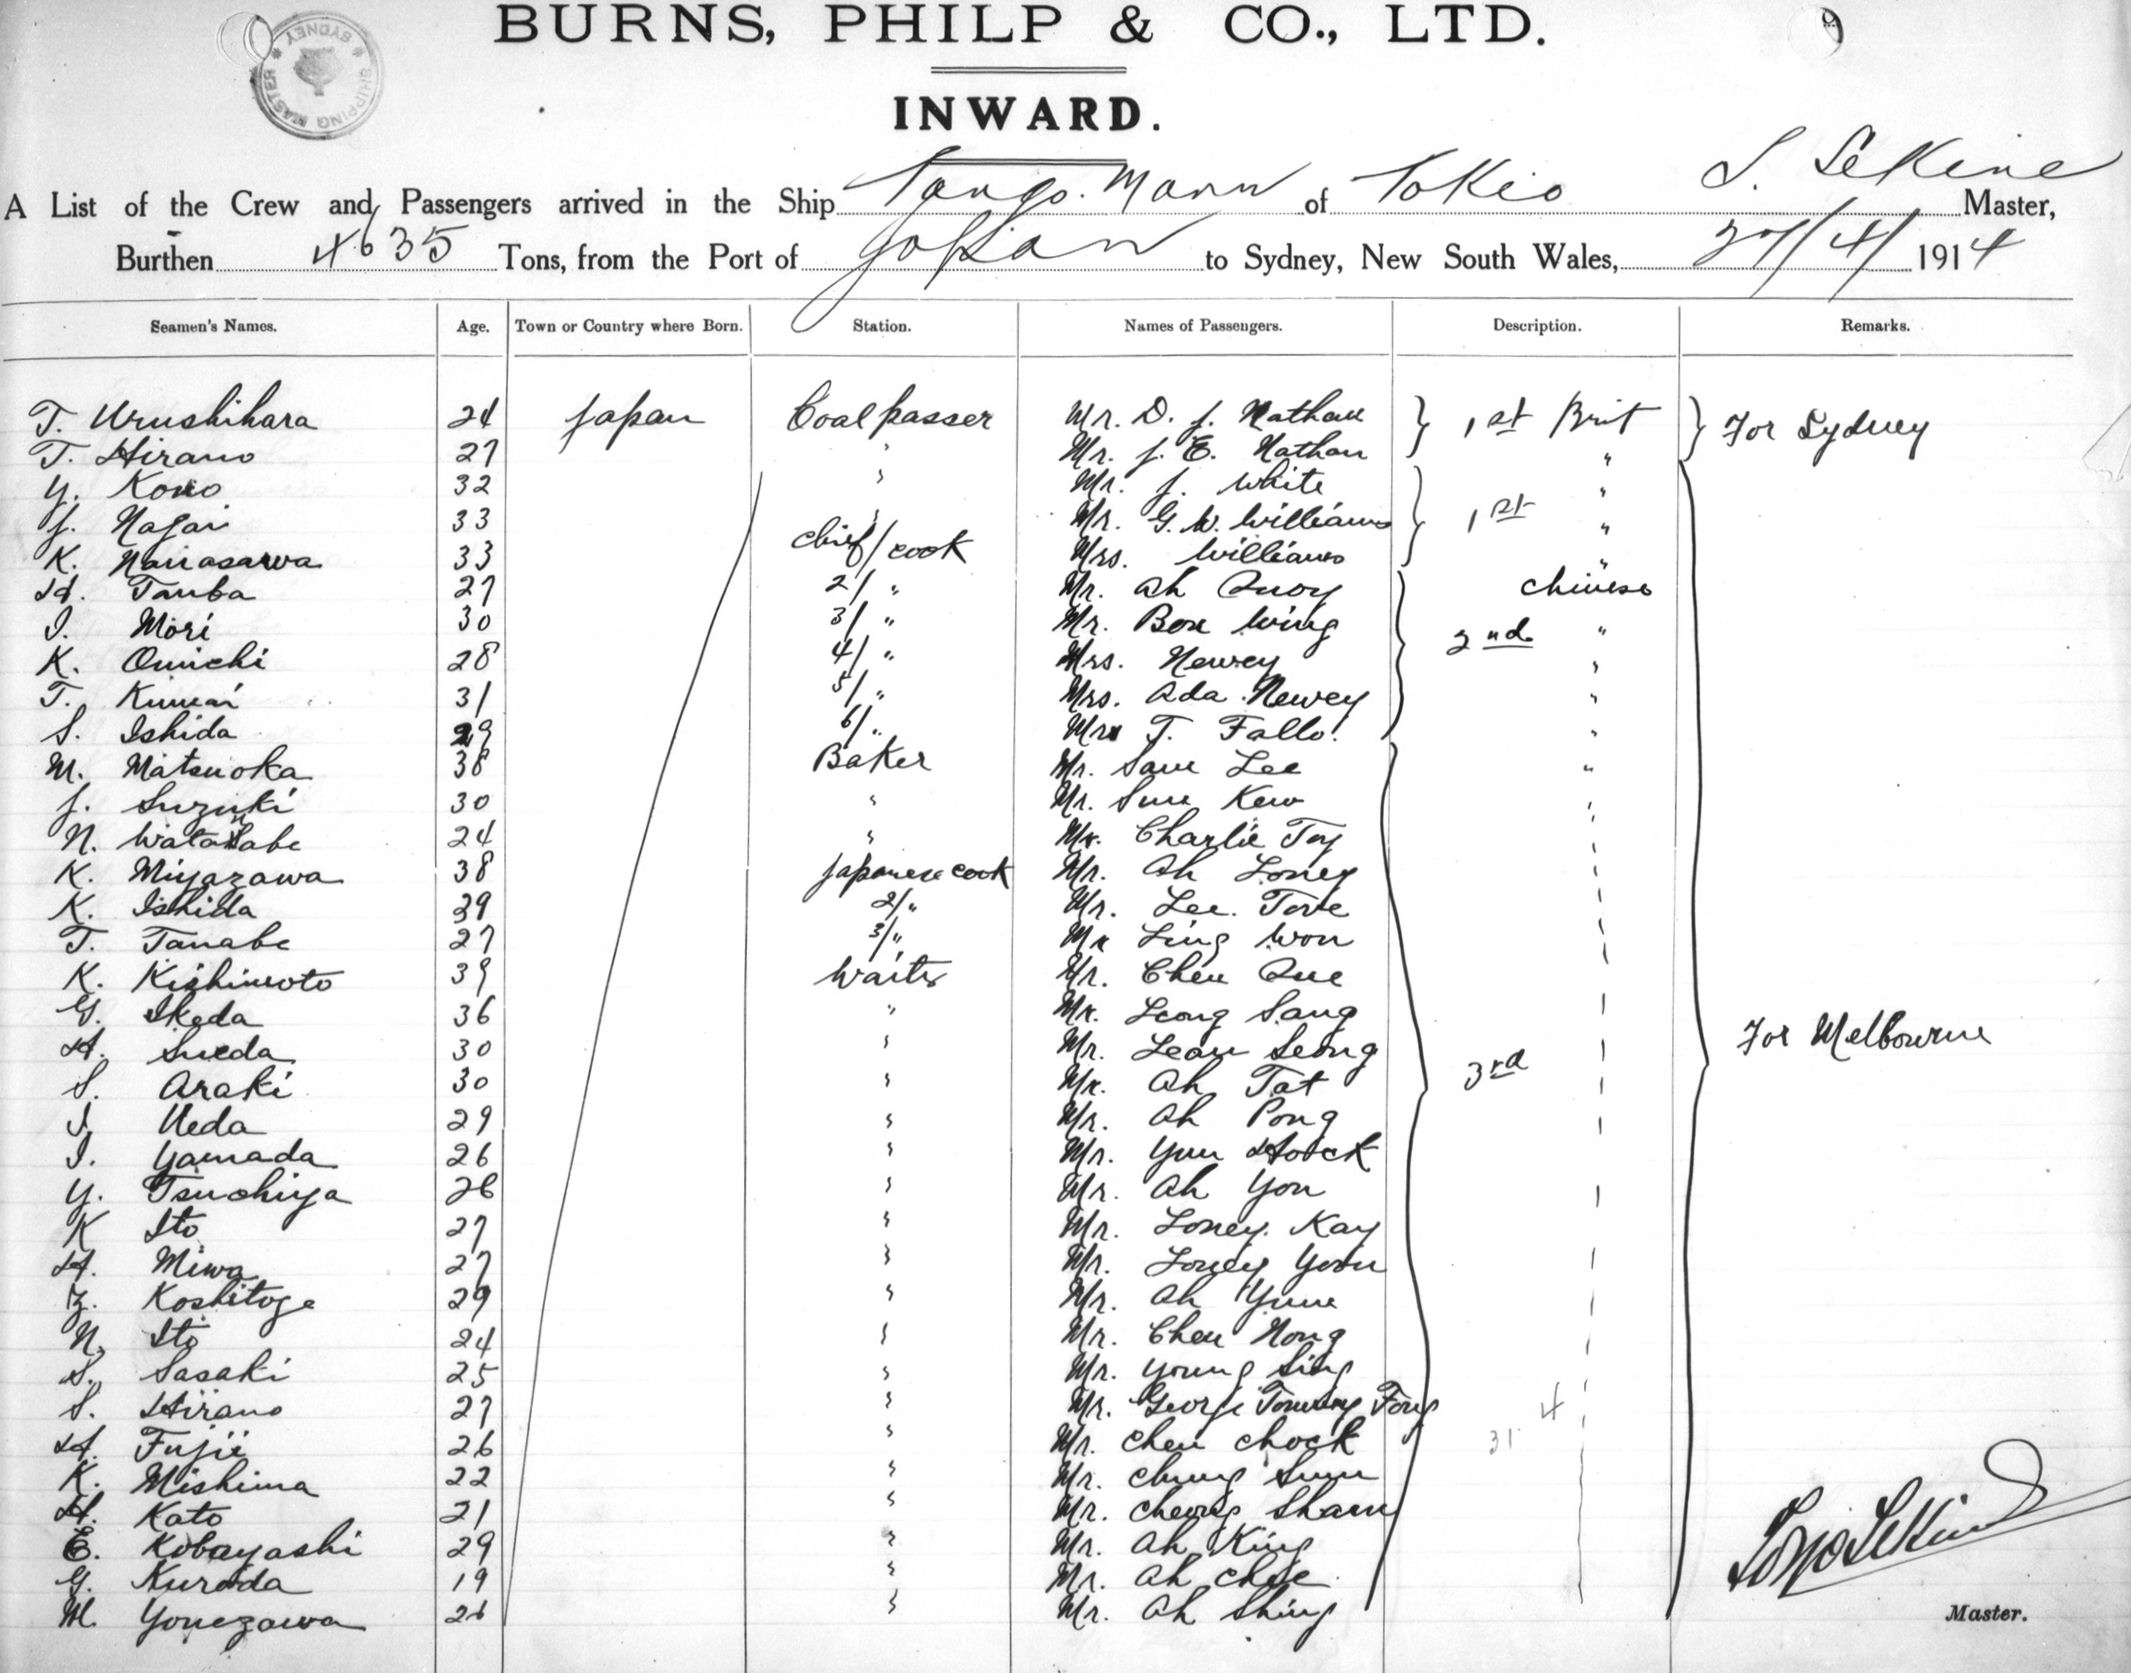 BURNS, PHILP & CO., LTD.
SHIPPING MASTER SYDNEY
INWARD.
A List of the Crew and Passengers arrived in the Ship Tango Maru of Tokio S. Sekine Master,
Burthen 4635 Tons, from the Port of Japan to Sydney, New South Wales, 27/4/1914
Seamen's Names. Age. Town or Country where Born. Station. Names of Passengers. Description. Remarks.
T. Urushihara 24 Japan Coal passer Mr. D. J. Nathan 1st Brit For Sydney
T. Hirano 27 " Mr. J. E. Nathan "
Y. Kono 32 " Mr. J. White "
J. Nagai 33 " Mr. G. W. Williams 1st "
K. 33 chief/cook Mrs. Williams "
H. Tanba 27 2/ " Mr. Ah Quoy Chinese
I. Mori 30 3/ " Mr. Bow Wing 2nd "
K. Omichi 28 4/ " Mrs. Newey "
T. 31 5/ " Mrs. Ada Newey "
S. Ishida 29 6/ " T. Fallo. "
M. Matsuoka 38 Baker Mr. Sam Lee "
J. Suzuki 30 " Mr. Sun Kew "
N. Watanabe 24 " Mr. Charlie Toy
K. Miyazawa 38 Japanese cook Mr. Ah Loney
K. Ishida 39 2/ " Mr. Lee
T. Tanabe 27 3/ " Mr. Ling Won
K. Kishimoto 39 Waiter Mr. Chen Que
G. Ikeda 36 " Mr. Leong Sang
H. Sueda 30 " Mr. Lean Seong For Melbourne
S. Araki 30 " Mr. Ah Tat 3rd
I. Ueda 29 " Mr. Ah Pong
I. Yamada 26 " Mr. Yun Hock
Y. Tsuchiya 26 " Mr. Ah You
K Ito 27 " Mr. Loney Kay
H. Miwa 27 " Mr. Loney Yoon
Z. Koshitoge 29 " Mr. Ah Yune
N. Ito 24 " Mr. Chen Nong
S. Sasaki 25 " Mr. Young Sing
S. Hirano 27 " Mr. George Fong 4
H. Fujii 26 " Mr. Chen Chock 31
K. Mishima 22 " Mr. Chung Sum
H. Kato 21 " Mr. Cheong Sham
E. Kobayashi 29 " Mr. Ah King
G. Kuroda 19 " Mr. Ah Chee
M. Yonezawa 26 " Mr. Ah Shing
Master.